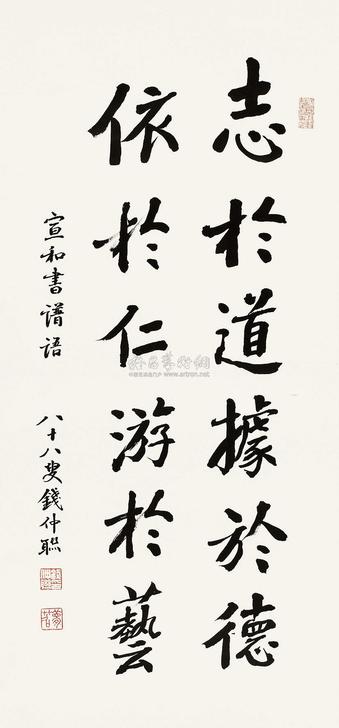 志於道據於德
依於仁游於藝
宣和書譜語
八十八叟錢仲聯
www.artron.net